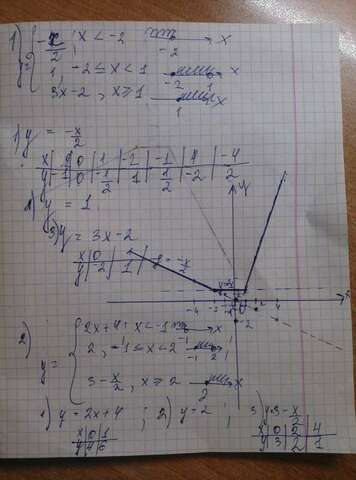 1) y = { -x/2, x < -2   -2   x
1, -2 ≤ x < 1   -2   1   x
3x-2, x ≥ 1   1   x
1) y = -x/2
x | 2 | 0 | 1 | -2 | -1 | 4 | -4
y | -1 | 0 | -1/2 | 1 | 1/2 | -2 | 2
2) y = 1
3) y = 3x-2
x | 0 | 1
y | -2 | 1
y = -x/2
y
x
-4 -2 2 4
-2
2) y = { 2x+4, x < -1   -1   x
2, -1 ≤ x < 2   -1   2   x
3 - x/2, x ≥ 2   2   x
1) y = 2x+4 ; 2) y = 2 ; 3) y = 3 - x/2
x | 0 | 1
y | 4 | 6
x | 0 | 2 | 4
y | 3 | 2 | 1